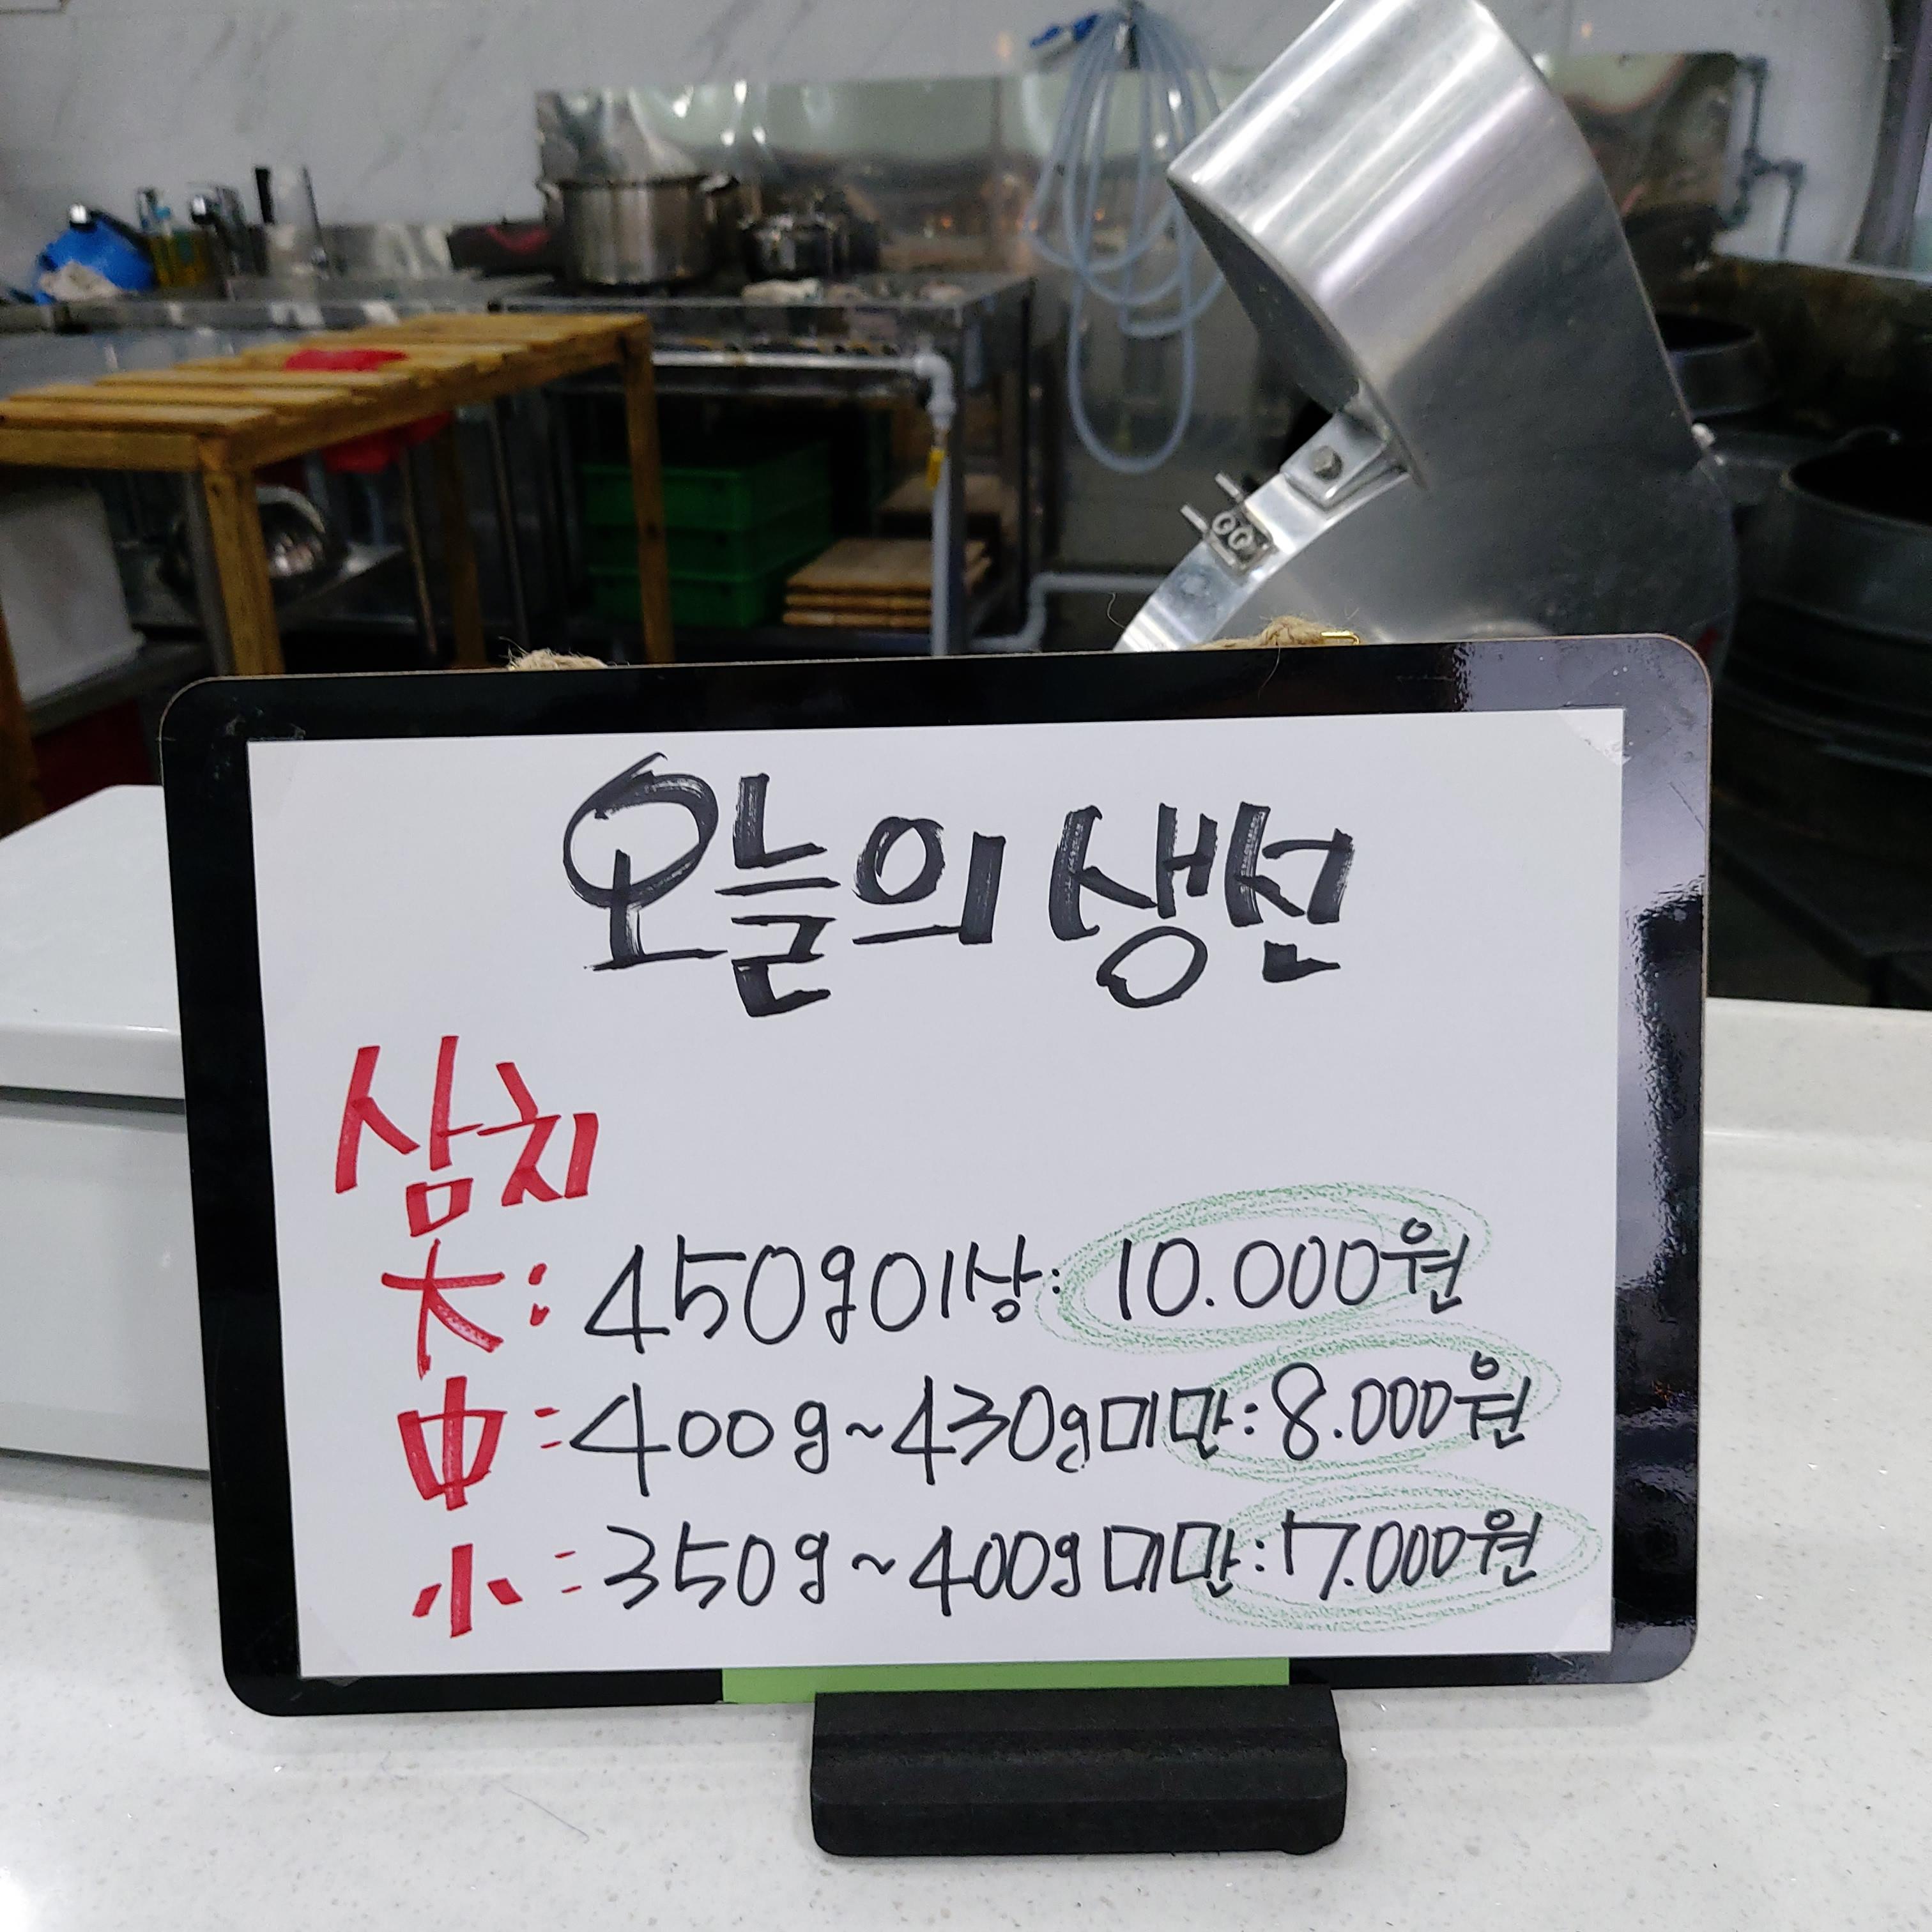 오늘의 생선
삼치
大: 450g이상: 10.000원
中: 400g~430g미만: 8.000원
小: 350g~400g미만: 7.000원